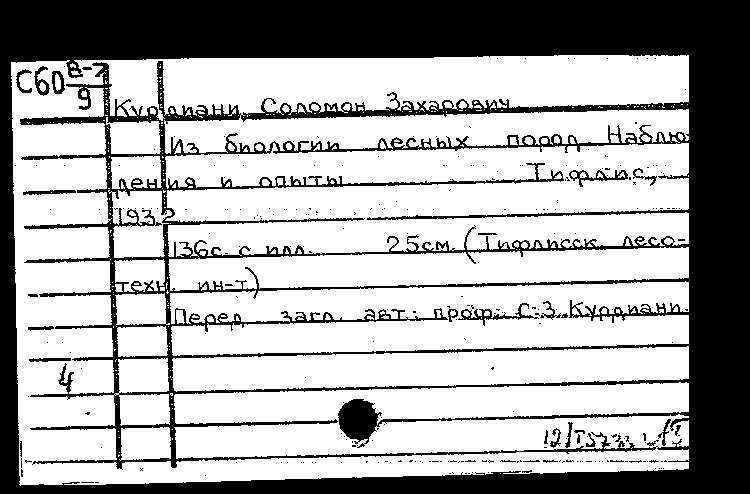 С60 В-7
9
Курдиани, Соломон Захарович
Из биологии лесных пород Наблю-
дения и опыты Тифлис,
1932
136с. с илл. 25см. (Тифлисск. лесо-
техн. ин-т)
Перед загл. авт.: проф. С.З. Курдиани.
4